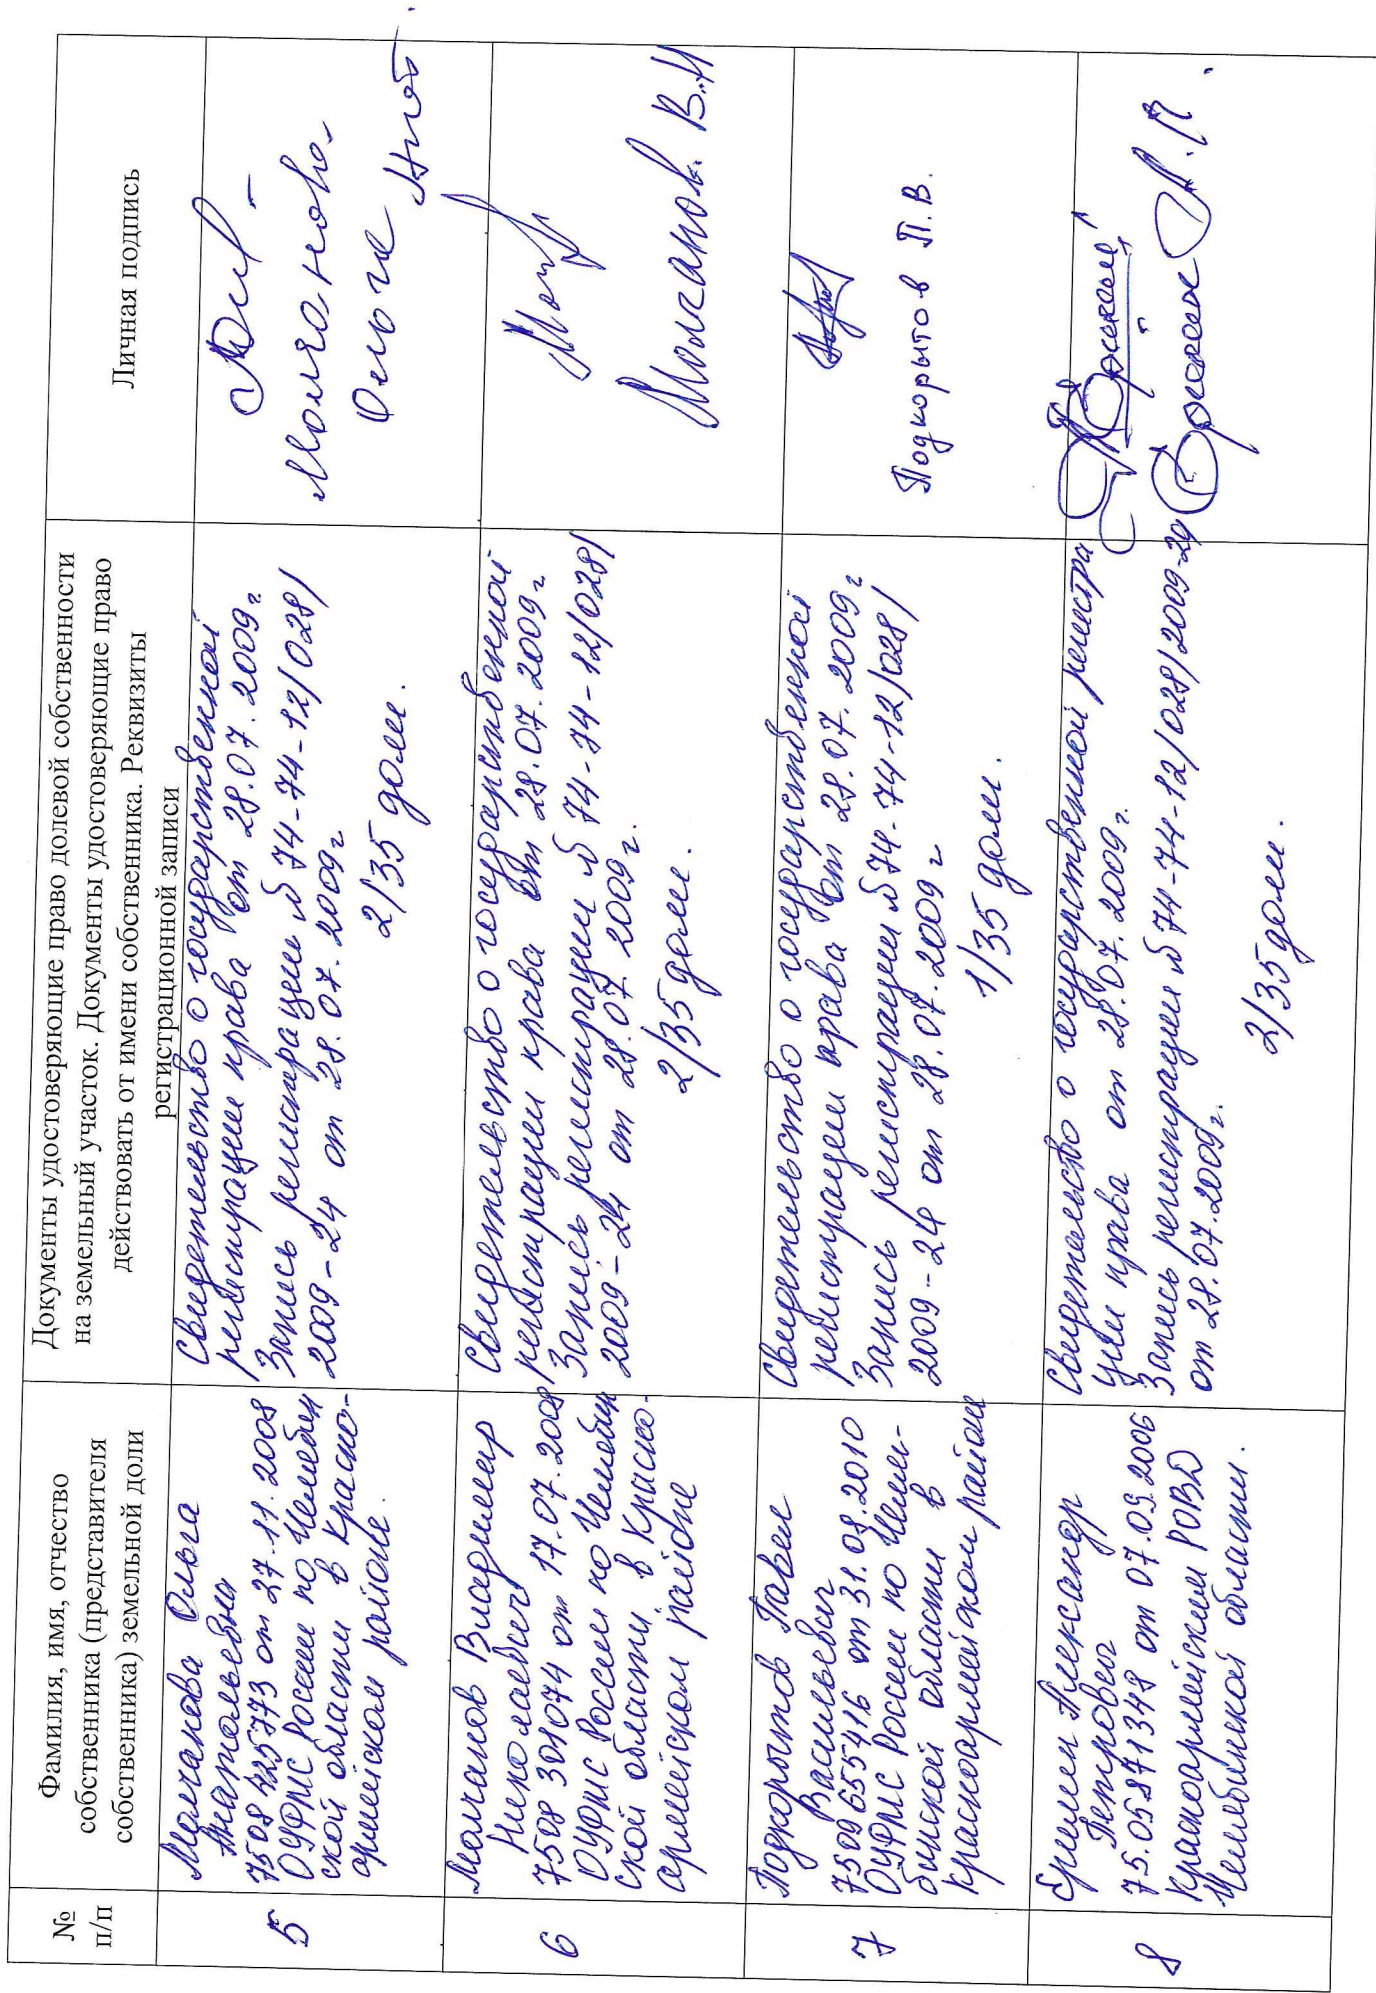 №
п/п
Фамилия, имя, отчество
собственника (представителя
собственника) земельной доли
Документы удостоверяющие право долевой собственности
на земельный участок. Документы удостоверяющие право
действовать от имени собственника. Реквизиты
регистрационной записи
Личная подпись
5
Молчанова Ольга
Анатольевна
7508 425773 от 27.11.2008
ОУФМС России по Челябин
ской области в Красно-
армейском районе.
Свидетельство о государственной
регистрации права от 28.07.2009г
Запись регистрации № 74-74-12/028/
2009-24 от 28.07.2009г
2/35 доли.
Молчанова
Ольга Анат.
6
Молчанов Владимир
Николаевич
7508 301074 от 17.07.2008
ОУФМС России по Челябин
ской области в Красно-
армейском районе
Свидетельство о государственной
регистрации права от 28.07.2009г
Запись регистрации № 74-74-12/028/
2009-24 от 28.07.2009г.
2/35 доли.
Молчанов. В.Н
7
Подкорытов Павел
Васильевич
7509 655416 от 31.08.2010
ОУФМС России по Челя-
бинской области в
Красноармейском районе
Свидетельство о государственной
регистрации права от 28.07.2009г
Запись регистрации № 74-74-12/028/
2009-24 от 28.07.2009г
1/35 доли.
Подкорытов П.В.
8
Еремин Александр
Петрович
75.05871348 от 07.09.2006
Красноармейским РОВД
Челябинской области.
Свидетельство о государственной регистра
ции права от 28.07.2009г.
Запись регистрации № 74-74-12/028/2009-24
от 28.07.2009г.
2/35 доли.